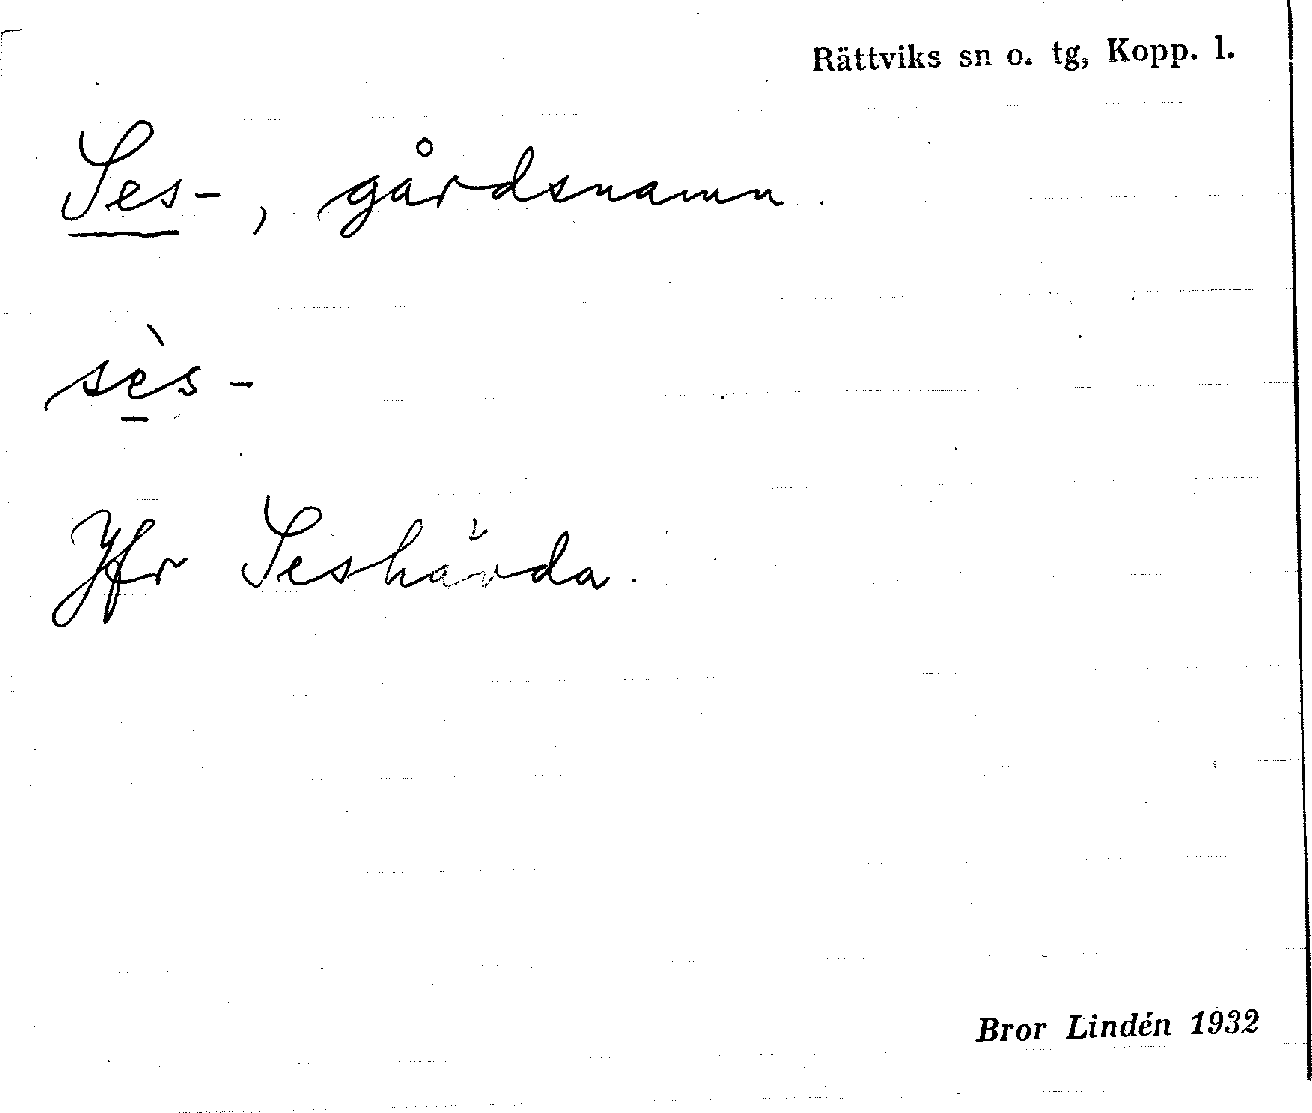 Rättviks sn o. tg, Kopp. l.
Ses-, gårdsnamn.
sès-
Jfr Seshävda.
Bror Lindén 1932